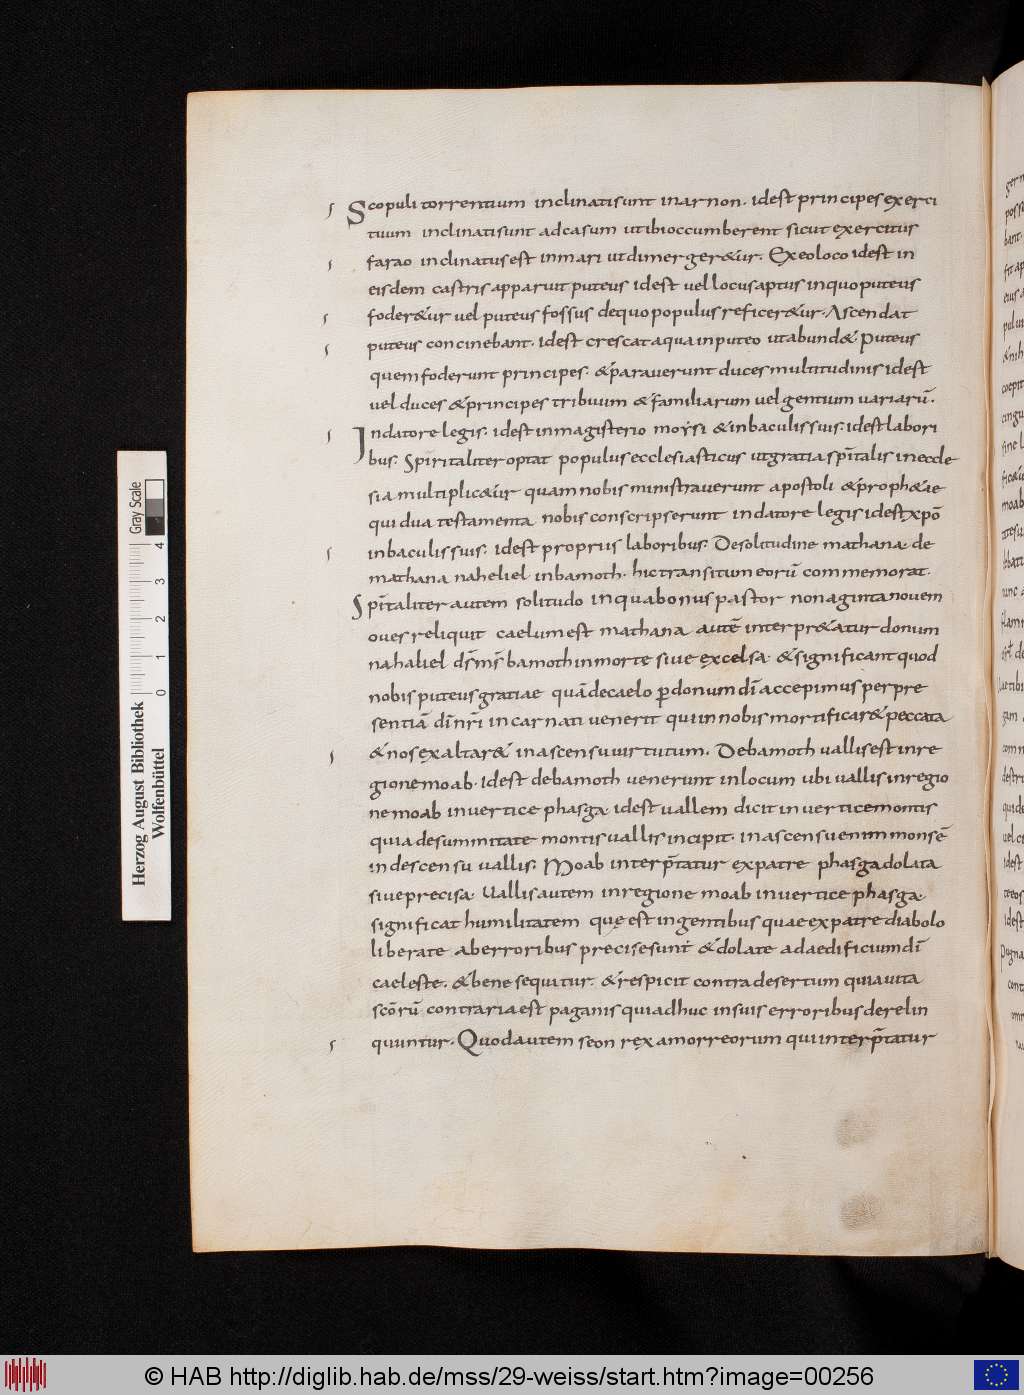 Scopuli torrentium inclinati sunt in arnon. idest principes exerci
tuum inclinati sunt ad casum ut ibi occumberent sicut exercitus
farao inclinatus est in mari ut dimerger&ur. Ex eo loco idest in
eisdem castris apparuit puteus idest vel locus aptus in quo puteus
foder&ur vel puteus fossus de quo populus reficer&ur. Ascendat
puteus concinebant. idest crescat aqua in puteo ut abund&. Puteus
quem foderunt principes. & paraverunt duces multitudinis idest
vel duces & principes tribuum & familiarum vel gentium variarū.
In datore legis. idest in magisterio moysi & in baculis suis. idest labori
bus. Spiritaliter optat populus ecclesiasticus ut gratia spītalis in eccle
sia multiplic&ur quam nobis ministraverunt apostoli & proph&ae
qui dua testamenta nobis conscripserunt in datore legis idest xpō
in baculis suis. idest propriis laboribus. De solitudine mathana. de
mathana naheliel in bamoth. hic transitum eorū commemorat.
Spītaliter autem solitudo in qua bonus pastor nonaginta novem
oves reliquit caelum est mathana autē interpr&atur donum
nahaliel dš mš bamoth in morte sive excelsa. & significant quod
nobis puteus gratiae quā de caelo p donum dī accepimus per pre
sentiā dī nrī incarnati venerit qui in nobis mortificar& peccata
& nos exaltar& in ascensu virtutum. De bamoth vallis est in re
gione moab. idest de bamoth venerunt in locum ubi vallis in regio
ne moab in vertice phasga. idest vallem dicit in vertice montis
quia de summitate montis vallis incipit. in ascensu enim mons ē
in descensu vallis. Moab interp̄tatur ex patre phasga dolata
sive precisa. Vallis autem in regione moab in vertice phasga.
significat humilitatem quę est in gentibus quae ex patre diabolo
liberate ab erroribus precise sunt & dolate ad aedificium dī
caeleste. & bene sequitur. & respicit contra desertum quia vita
scōrū contraria est paganis qui adhuc in suis erroribus derelin
quuntur. Quod autem seon rex amorreorum qui interp̄tatur
Gray Scale
4
3
2
1
0
Herzog August Bibliothek
Wolfenbüttel
© HAB http://diglib.hab.de/mss/29-weiss/start.htm?image=00256